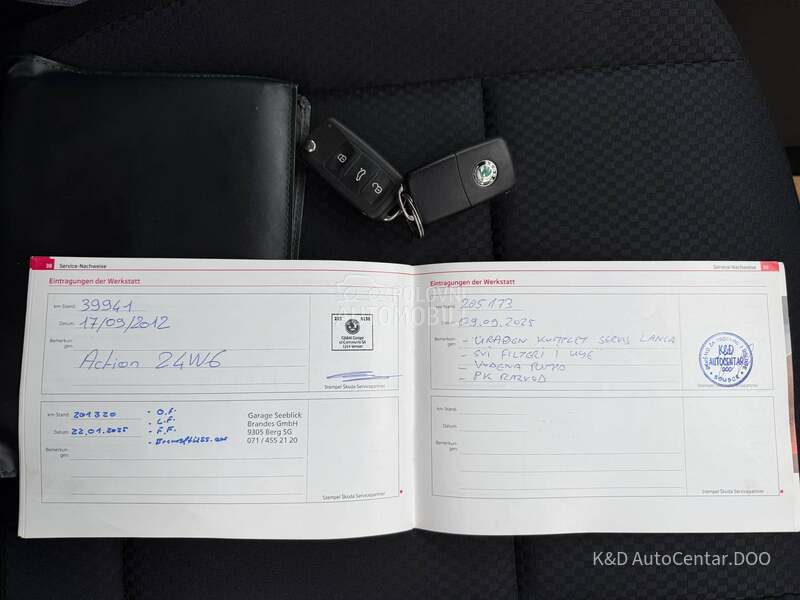 38 Service-Nachweise
Eintragungen der Werkstatt
km-Stand: 39941
Datum: 17/09/2012
Bemerkun-
gen:
Action 24W6
Stempel Škoda Servicepartner
km-Stand: 201320
Datum: 22.01.2025
Bemerkun-
gen:
- O.F.
- L.F.
- F.F.
Garage Seeblick
Brandes GmbH
9305 Berg SG
071 / 455 21 20
Stempel Škoda Servicepartner
Service-Nachweise 39
Eintragungen der Werkstatt
km-Stand: 205173
Datum: 09.09.2025
Bemerkun-
gen:
- URAĐEN KOMPLET SERVIS LANCA
- SVI FILTERI I ULJE
- VODENA PUMPA
- PK RAZVOD
K&D
AUTOCENTAR
DOO
Stempel Škoda Servicepartner
Bemerkun-
gen:
Stempel Škoda Servicepartner
POLOVNI
AUTOMOBILI
K&D AutoCentar.DOO